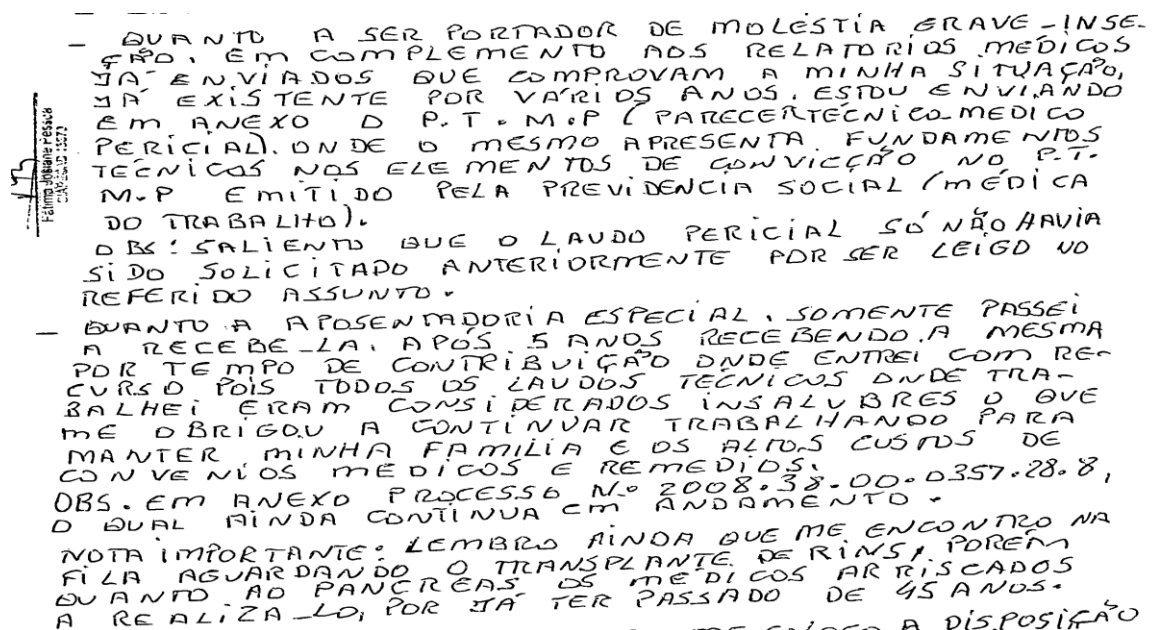 - QUANTO A SER PORTADOR DE MOLESTIA GRAVE - INSE-
ÇÃO. EM COMPLEMENTO AOS RELATORIOS MEDICOS
JÁ ENVIADOS QUE COMPROVAM A MINHA SITUAÇÃO,
JÁ EXISTENTE POR VÁRIOS ANOS. ESTOU ENVIANDO
EM ANEXO O P.T.M.P (PARECER TÉCNICO MEDICO
PERICIAL). ONDE O MESMO APRESENTA FUNDAMENTOS
TECNICOS NOS ELEMENTOS DE CONVICÇÃO NO P.T.
M.P EMITIDO PELA PREVIDENCIA SOCIAL (MÉDICA
DO TRABALHO).
OBS: SALIENTO QUE O LAUDO PERICIAL SÓ NÃO HAVIA
SIDO SOLICITADO ANTERIORMENTE POR SER LEIGO NO
REFERIDO ASSUNTO.
- QUANTO A APOSENTADORIA ESPECIAL, SOMENTE PASSEI
A RECEBE-LA, APÓS 5 ANOS RECEBENDO A MESMA
POR TEMPO DE CONTRIBUIÇÃO ONDE ENTREI COM RE-
CURSO POIS TODOS OS LAUDOS TECNICOS ONDE TRA-
BALHEI ERAM CONSIDERADOS INSALUBRES O QUE
ME OBRIGOU A CONTINUAR TRABALHANDO PARA
MANTER MINHA FAMILIA E OS ALTOS CUSTOS DE
CONVENIOS MEDICOS E REMEDIOS.
OBS. EM ANEXO PROCESSO N.o 2008.38.00.0357.28.8,
O QUAL AINDA CONTINUA EM ANDAMENTO.
NOTA IMPORTANTE: LEMBRO AINDA QUE ME ENCONTRO NA
FILA AGUARDANDO O TRANSPLANTE DE RINS, PORÉM
QUANTO AO PANCREAS OS MEDICOS ARRISCADOS
A REALIZA-LO, POR JÁ TER PASSADO DE 45 ANOS.
A DISPOSIÇÃO
Fátima Josiane Pessoa